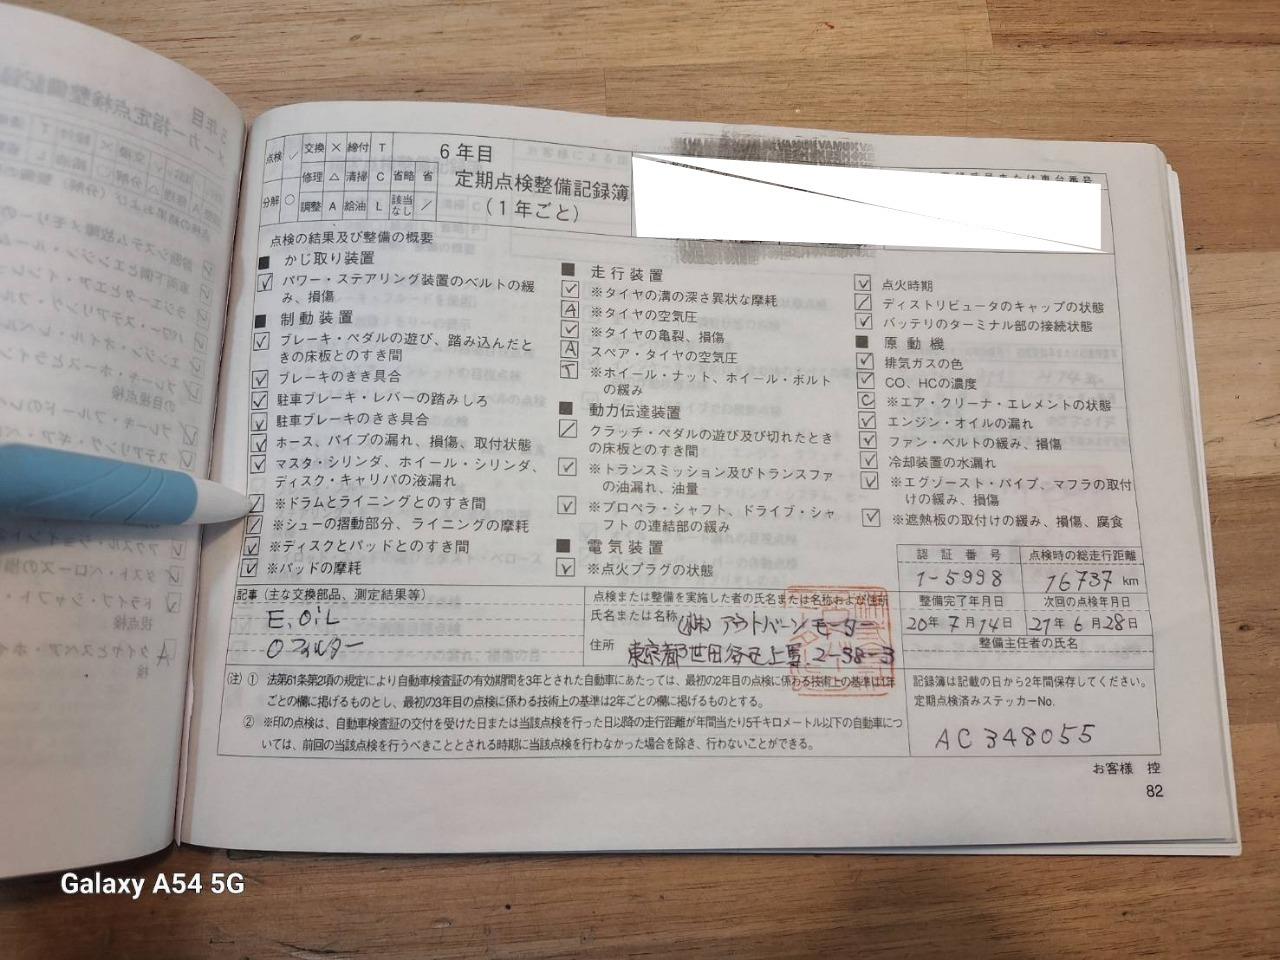 点検 ✓ 交換 × 締付 T
修理 △ 清掃 C 省略 省
分解 ○ 調整 A 給油 L 該当なし ／
6年目
定期点検整備記録簿
(1年ごと)
点検の結果及び整備の概要
■ かじ取り装置
✓ パワー・ステアリング装置のベルトの緩
み、損傷
■ 制動装置
✓ ブレーキ・ペダルの遊び、踏み込んだと
きの床板とのすき間
✓ ブレーキのきき具合
✓ 駐車ブレーキ・レバーの踏みしろ
✓ 駐車ブレーキのきき具合
✓ ホース、パイプの漏れ、損傷、取付状態
✓ マスタ・シリンダ、ホイール・シリンダ、
ディスク・キャリパの液漏れ
／ ※ドラムとライニングとのすき間
／ ※シューの摺動部分、ライニングの摩耗
✓ ※ディスクとパッドとのすき間
✓ ※パッドの摩耗
■ 走行装置
✓ ※タイヤの溝の深さ異状な摩耗
A ※タイヤの空気圧
✓ ※タイヤの亀裂、損傷
A スペア・タイヤの空気圧
T ※ホイール・ナット、ホイール・ボルト
の緩み
■ 動力伝達装置
／ クラッチ・ペダルの遊び及び切れたとき
の床板とのすき間
✓ ※トランスミッション及びトランスファ
の油漏れ、油量
✓ ※プロペラ・シャフト、ドライブ・シャ
フトの連結部の緩み
■ 電気装置
✓ ※点火プラグの状態
✓ 点火時期
／ ディストリビュータのキャップの状態
✓ バッテリのターミナル部の接続状態
■ 原動機
✓ 排気ガスの色
✓ CO、HCの濃度
C ※エア・クリーナ・エレメントの状態
✓ エンジン・オイルの漏れ
✓ ファン・ベルトの緩み、損傷
✓ 冷却装置の水漏れ
✓ ※エグゾースト・パイプ、マフラの取付
けの緩み、損傷
✓ ※遮熱板の取付けの緩み、損傷、腐食
認証番号 点検時の総走行距離
1-5998 16737 km
整備完了年月日 次回の点検年月日
20年 7月14日 21年 6月28日
整備主任者の氏名
記事(主な交換部品、測定結果等)
E.OiL
Oフィルター
点検または整備を実施した者の氏名または名称および住所
氏名または名称 (株)アウトバーンモーター
住所 東京都世田谷区上馬.2-38-3
(注) ① 法第61条第2項の規定により自動車検査証の有効期間を3年とされた自動車にあたっては、最初の2年目の点検に係わる技術上の基準は1年
ごとの欄に掲げるものとし、最初の3年目の点検に係わる技術上の基準は2年ごとの欄に掲げるものとする。
② ※印の点検は、自動車検査証の交付を受けた日または当該点検を行った日以降の走行距離が年間当たり5千キロメートル以下の自動車につ
いては、前回の当該点検を行うべきこととされる時期に当該点検を行わなかった場合を除き、行わないことができる。
記録簿は記載の日から2年間保存してください。
定期点検済みステッカーNo.
AC348055
お客様 控
82
Galaxy A54 5G